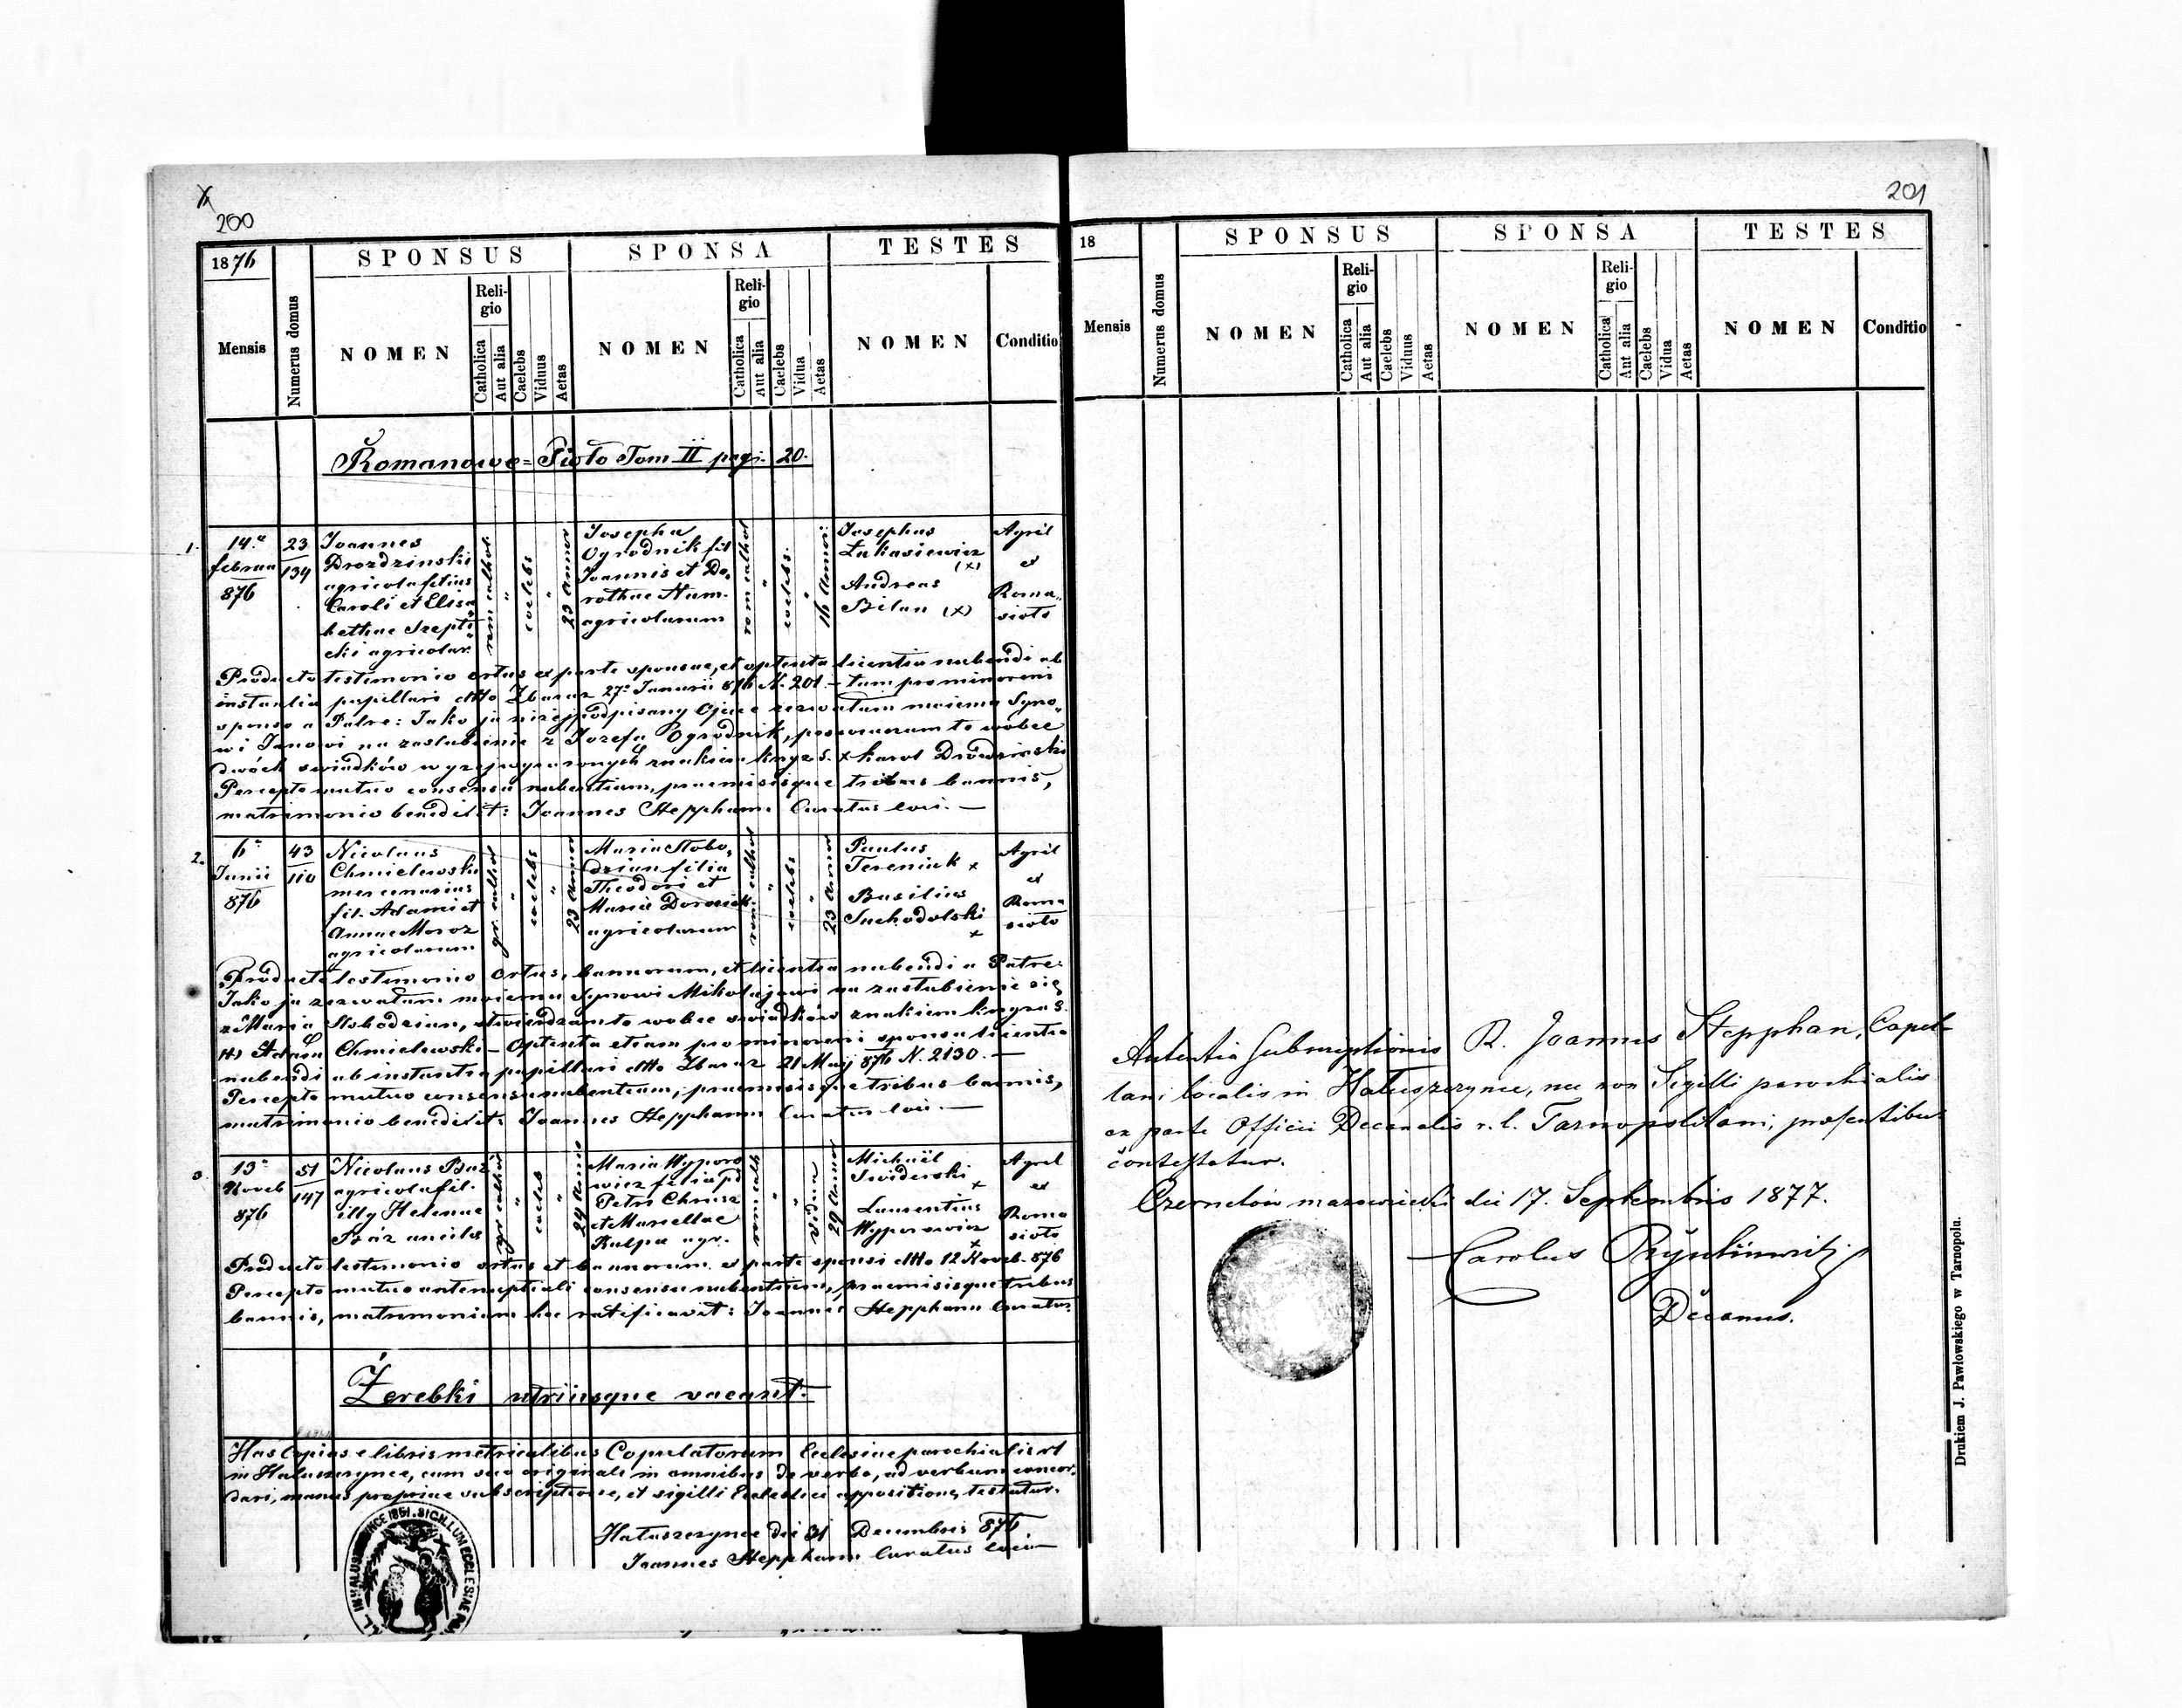 200
1876
Mensis
Numerus domus
SPONSUS
NOMEN
Religio
Catholica
Aut alia
Caelebs
Viduus
Aetas
SPONSA
NOMEN
Religio
Catholica
Aut alia
Caelebs
Vidua
Aetas
TESTES
NOMEN
Conditio
Romanowe=Sioło Tom II pagi. 20.
1.
14.a
februa
876
23
134
Joannes
Drozdzinski
agricola filius
Caroli et Elisa
bethae Szepti
cki agricolar.
rom cathol.
caelebs
23 annor
Josepha
Ogrodnik fil
Joannis et Do,
rothae Hum.
agricolarum
rom cathol
caelebs.
16 annor:
Josephus
Łukasiewicz
(x)
Andreas
Bilan (x)
Agril
et
Roma,,
sioto
Producto testimonio ortus ex parte sponsae, et optenta licentia nubendi ab
instantia pupillari dtto Zbaraz 27a Januarii 876 N. 201. – tum pro minoreni
sponso a Patre: Jako ja nizej podpisany Ojciec zezwalam mojemu Syno,,
wi Janowi na zaslubienie z Jozefa Ogrodnik, potwierdzam to wobec
dwóch swiadków wyzej wyrazonych znakiem krzyza S. x Karol Drozdzinski
Percepto mutuo consensu nubentium, praemisisque tribus bannis,
matrimonio benedixit: Joannes Stepphann Curatus loci. —
2.
6a
Junii
876
43
110
Nicolaus
Chmielewski
mercenarius
fil. Adami et
Annae Moroz
agricolarum
gr. cathol
caelebs
23 annor
Maria Slobo,
dzian filia
Theodori et
Mariae
agricolarum
rom. cathol
caelebs
23 annor
Paulus
Tereniuk x
Basilius
Suchodolski
x
Agril
et
Roma
sioto
Producto testimonio ortus, bannorum, et licentia nubendi a Patre:
Jako ja zezwalam mojemu Synowi Mikolajowi na zaslubienie się
z Maria Slobodzian, stwierdzam to wobec swiadków znakiem krzyza S.
(+) Adam Chmielewski – Optenta etiam pro minoreni sponsa licentia
nubendi ab instantia pupillari dtto Zbaraz 21 Maij 876 N. 2130. —
Percepto mutuo consensu nubentium, praemisisque tribus bannis,
matrimonio benedixit: Joannes Stepphann Curatus loci. —
3.
13a
Noveb
876
51
147
Nicolaus Baz
agricola fil.
illg Helenae
Baz ancilla
gr cathol
caelebs
24 annor
Maria Wyporo
wicz filia pd
Petri Chrusz
et Mariellae
Kulpa agr.
rom cath
vidua
29 annor
Michaël
Swiderski
x
Laurentius
Wyporowicz
x
Agril
et
Roma
sioto
Producto testimonio ortus et bannorum ex parte sponsi dtto 12 Noveb. 876
Percepto mutuo antenuptiali consensu nubentium, praemisisque tribus
bannis, matrimonium hoc ratificavit: Joannes Stepphann Curatus
Żerebki utriusque vacant:
Has Copias e libris metricalibus Copulatorum Ecclesiae parochialis rl
in Haluszczynce, cum suo originali in omnibus de verbo, ad verbum concor,
dari, manus propriae subscriptione, et sigilli Ecclesiae appositione, testatur.
Haluszczynce die 31 Decembris 876.
Joannes Stepphann Curatus loci
201
18
Mensis
Numerus domus
SPONSUS
NOMEN
Religio
Catholica
Aut alia
Caelebs
Viduus
Aetas
SPONSA
NOMEN
Religio
Catholica
Aut alia
Caelebs
Vidua
Aetas
TESTES
NOMEN
Conditio
Autentia Subscriptionis R. Joannes Stepphan, Capel-
lani localis in Haluszczynce, nec non Sigilli parochialis
ex parte Officii Decanalis r. l. Tarnopolitani, presentibus
contestatur.
Czernelów mazowiecki die 17. Septembris 1877.
Carolus
Decanus.
Drukiem J. Pawłowskiego w Tarnopolu.